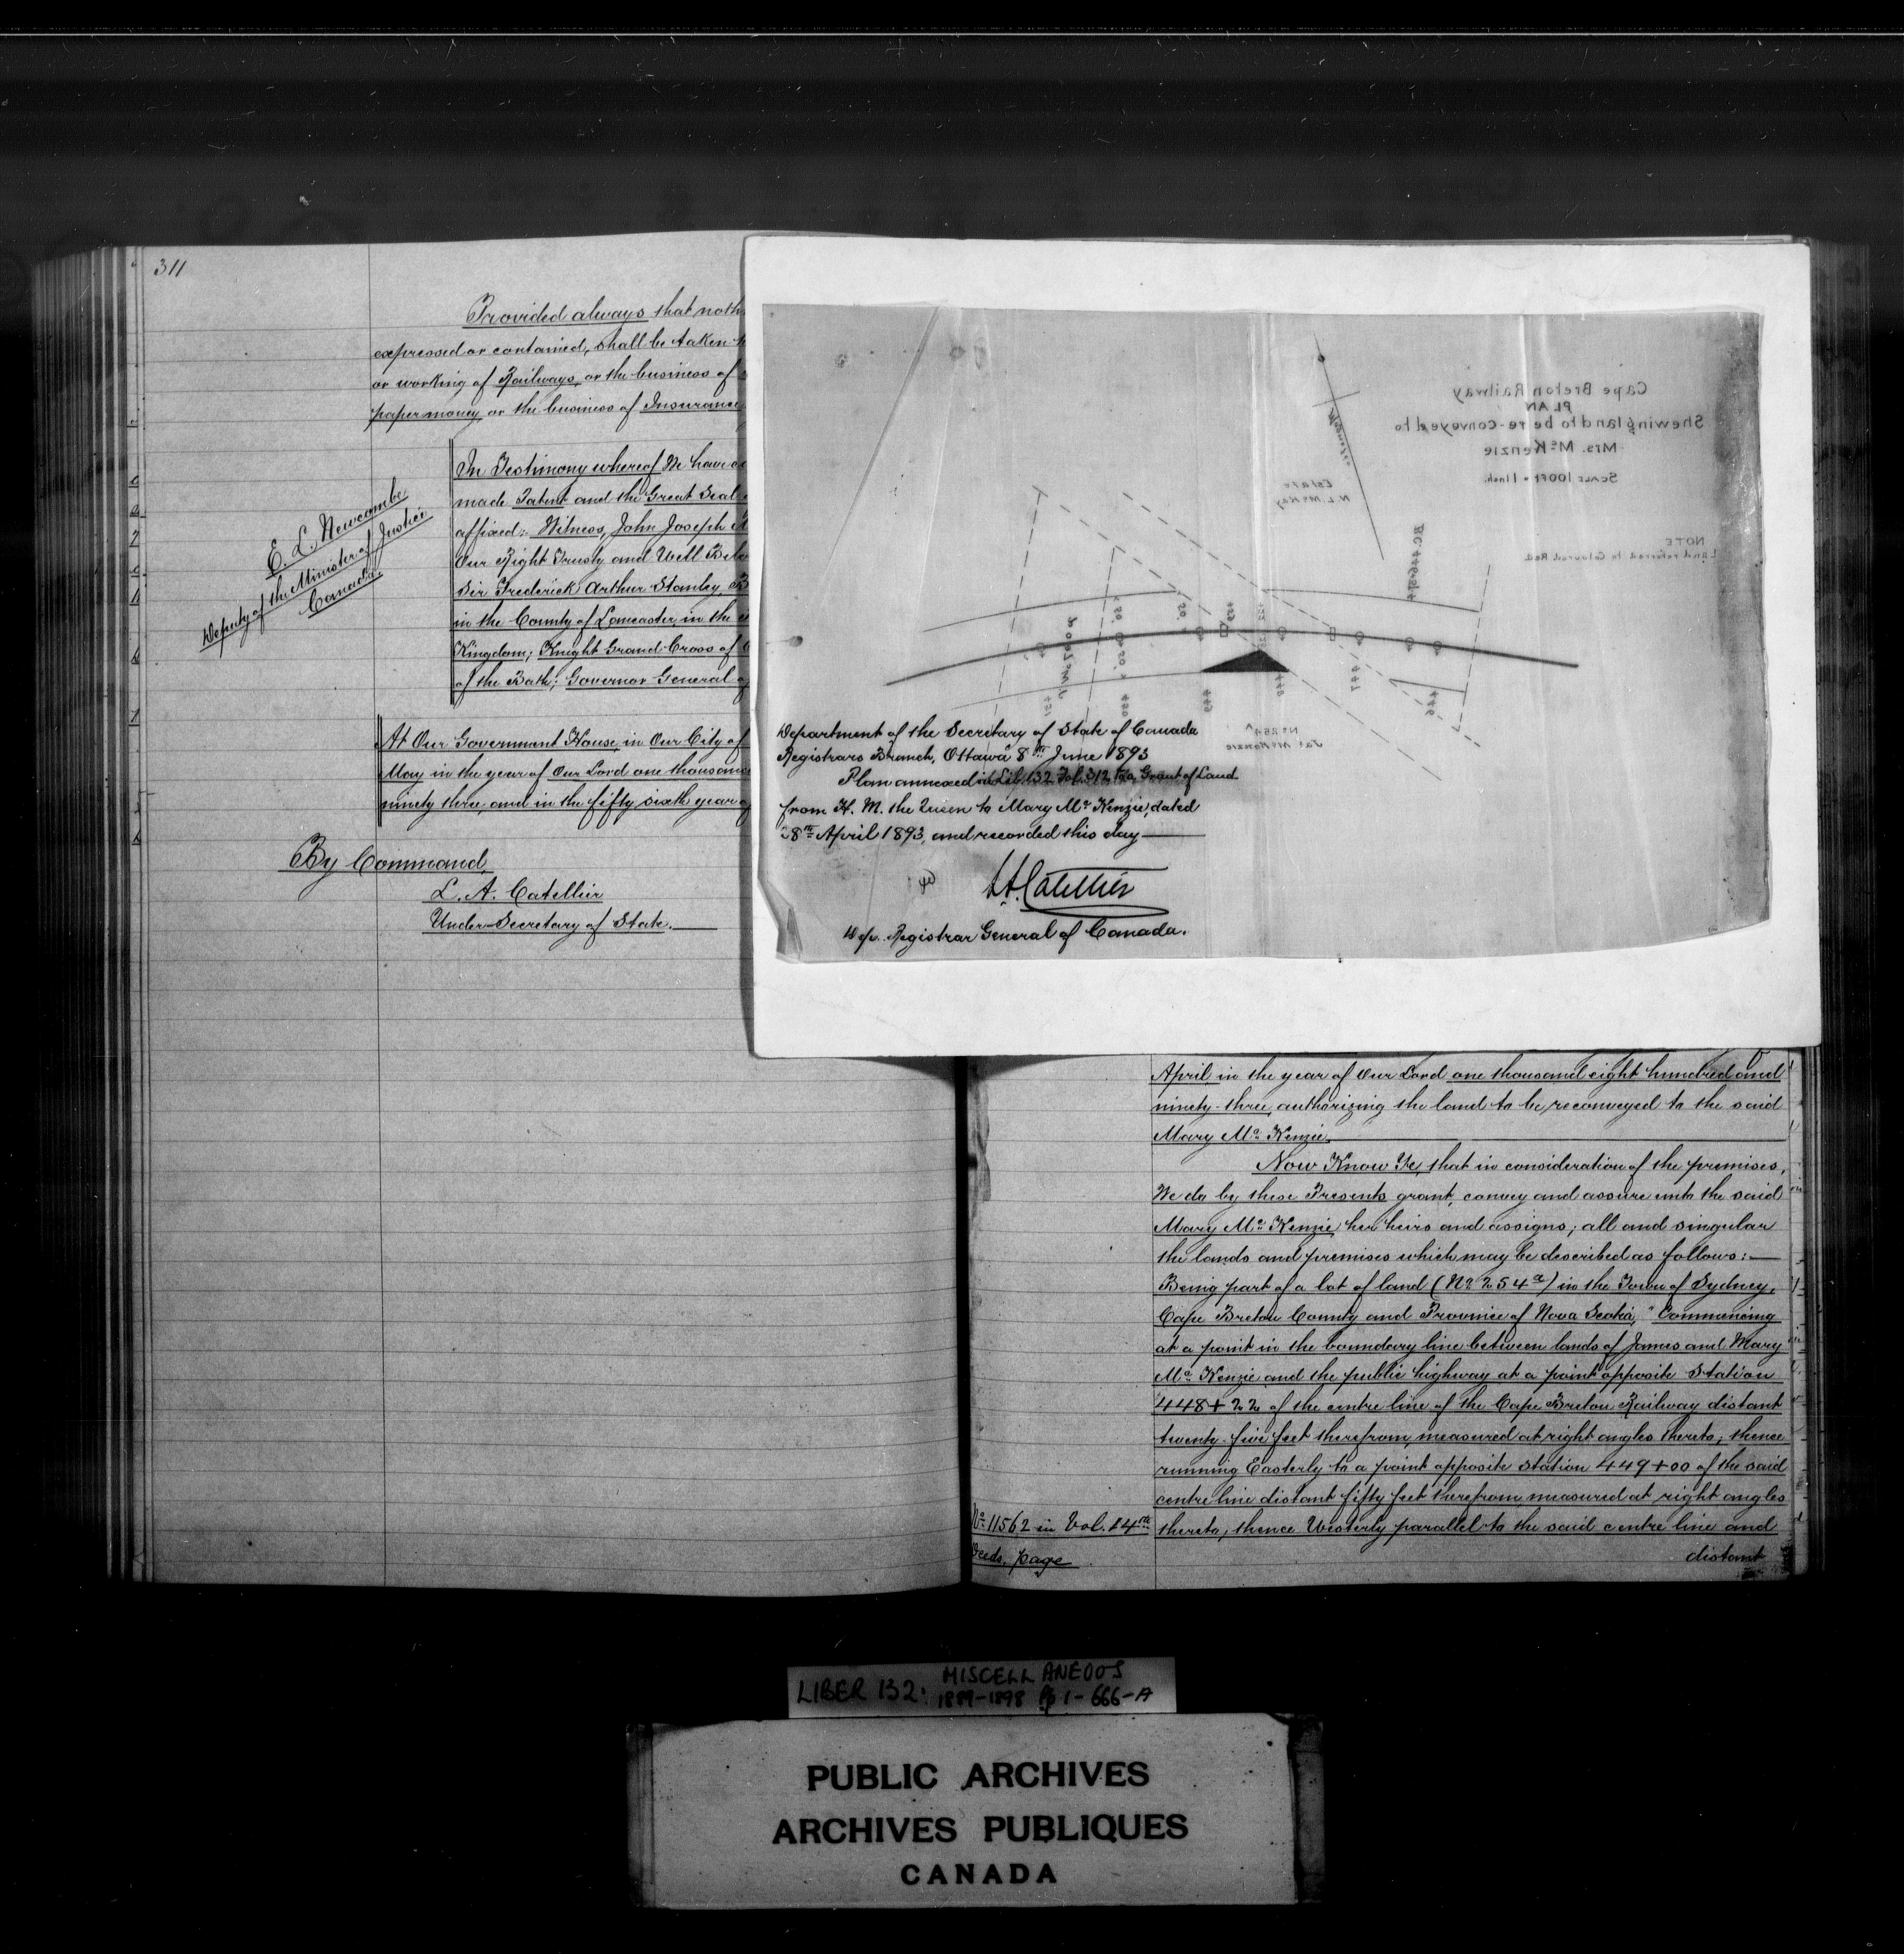 311
Provided always that noth
expressed or contained, shall be taken
or working of Railways, or the business of
paper money or the business of Insurance
In Testimony whereof We have
made Patent and the Great Seal
affixed:- Witness, John Joseph
Our Right Trusty and Well Belo
Sir Frederick Arthur Stanley, B
in the County of Lancaster, in the
Kingdom; Knight Grand Cross of
of the Bath; Governor General of
At Our Government House, in Our City of
May in the year of Our Lord one thousand
ninety three, and in the fifty sixth year of
E. L. Newcombe
Deputy of the Minister of Justice
Canada.
By Command,
L. A. Catellier
Under-Secretary of State.
Cape Breton Railway
PLAN
Shewing land to be re-conveyed to
Mrs. McKenzie
Scale 100ft = 1 inch.
NOTE
Land referred to Coloured Red.
Estate
N. L. McKay
No 254a
Jas McKenzie
451
450
449
448
447
446
Department of the Secretary of State of Canada
Registrars Branch, Ottawa 8th June 1893
Plan annexed in Lib. 132 Fol. 312 to a Grant of Land
from H. M. the Queen to Mary Mc Kenzie, dated
28th April 1893, and recorded this day
L A Catellier
Dep. Registrar General of Canada.
April in the year of Our Lord one thousand eight hundred and
ninety-three, authorizing the land to be reconveyed to the said
Mary Mc Kenzie.
Now Know Ye, that in consideration of the premises,
We do by these Presents grant, convey and assure unto the said
Mary Mc Kenzie, her heirs and assigns; all and singular
the lands and premises which may be described as follows:-
Being part of a lot of land (No 254a) in the Town of Sydney,
Cape Breton County and Province of Nova Scotia, "Commencing
at a point in the boundary line between lands of James and Mary
Mc Kenzie and the public highway at a point opposite Station
448+22 of the centre line of the Cape Breton Railway distant
twenty-five feet therefrom, measured at right angles thereto; thence
running Easterly to a point opposite Station 449+00 of the said
centre line distant fifty feet therefrom measured at right angles
thereto, thence Westerly parallel to the said centre line and
distant
No 11562 in Vol. 14th
Deeds, page
LIBER 132. MISCELLANEOUS
1889-1898 Pp 1-666-A
PUBLIC ARCHIVES
ARCHIVES PUBLIQUES
CANADA